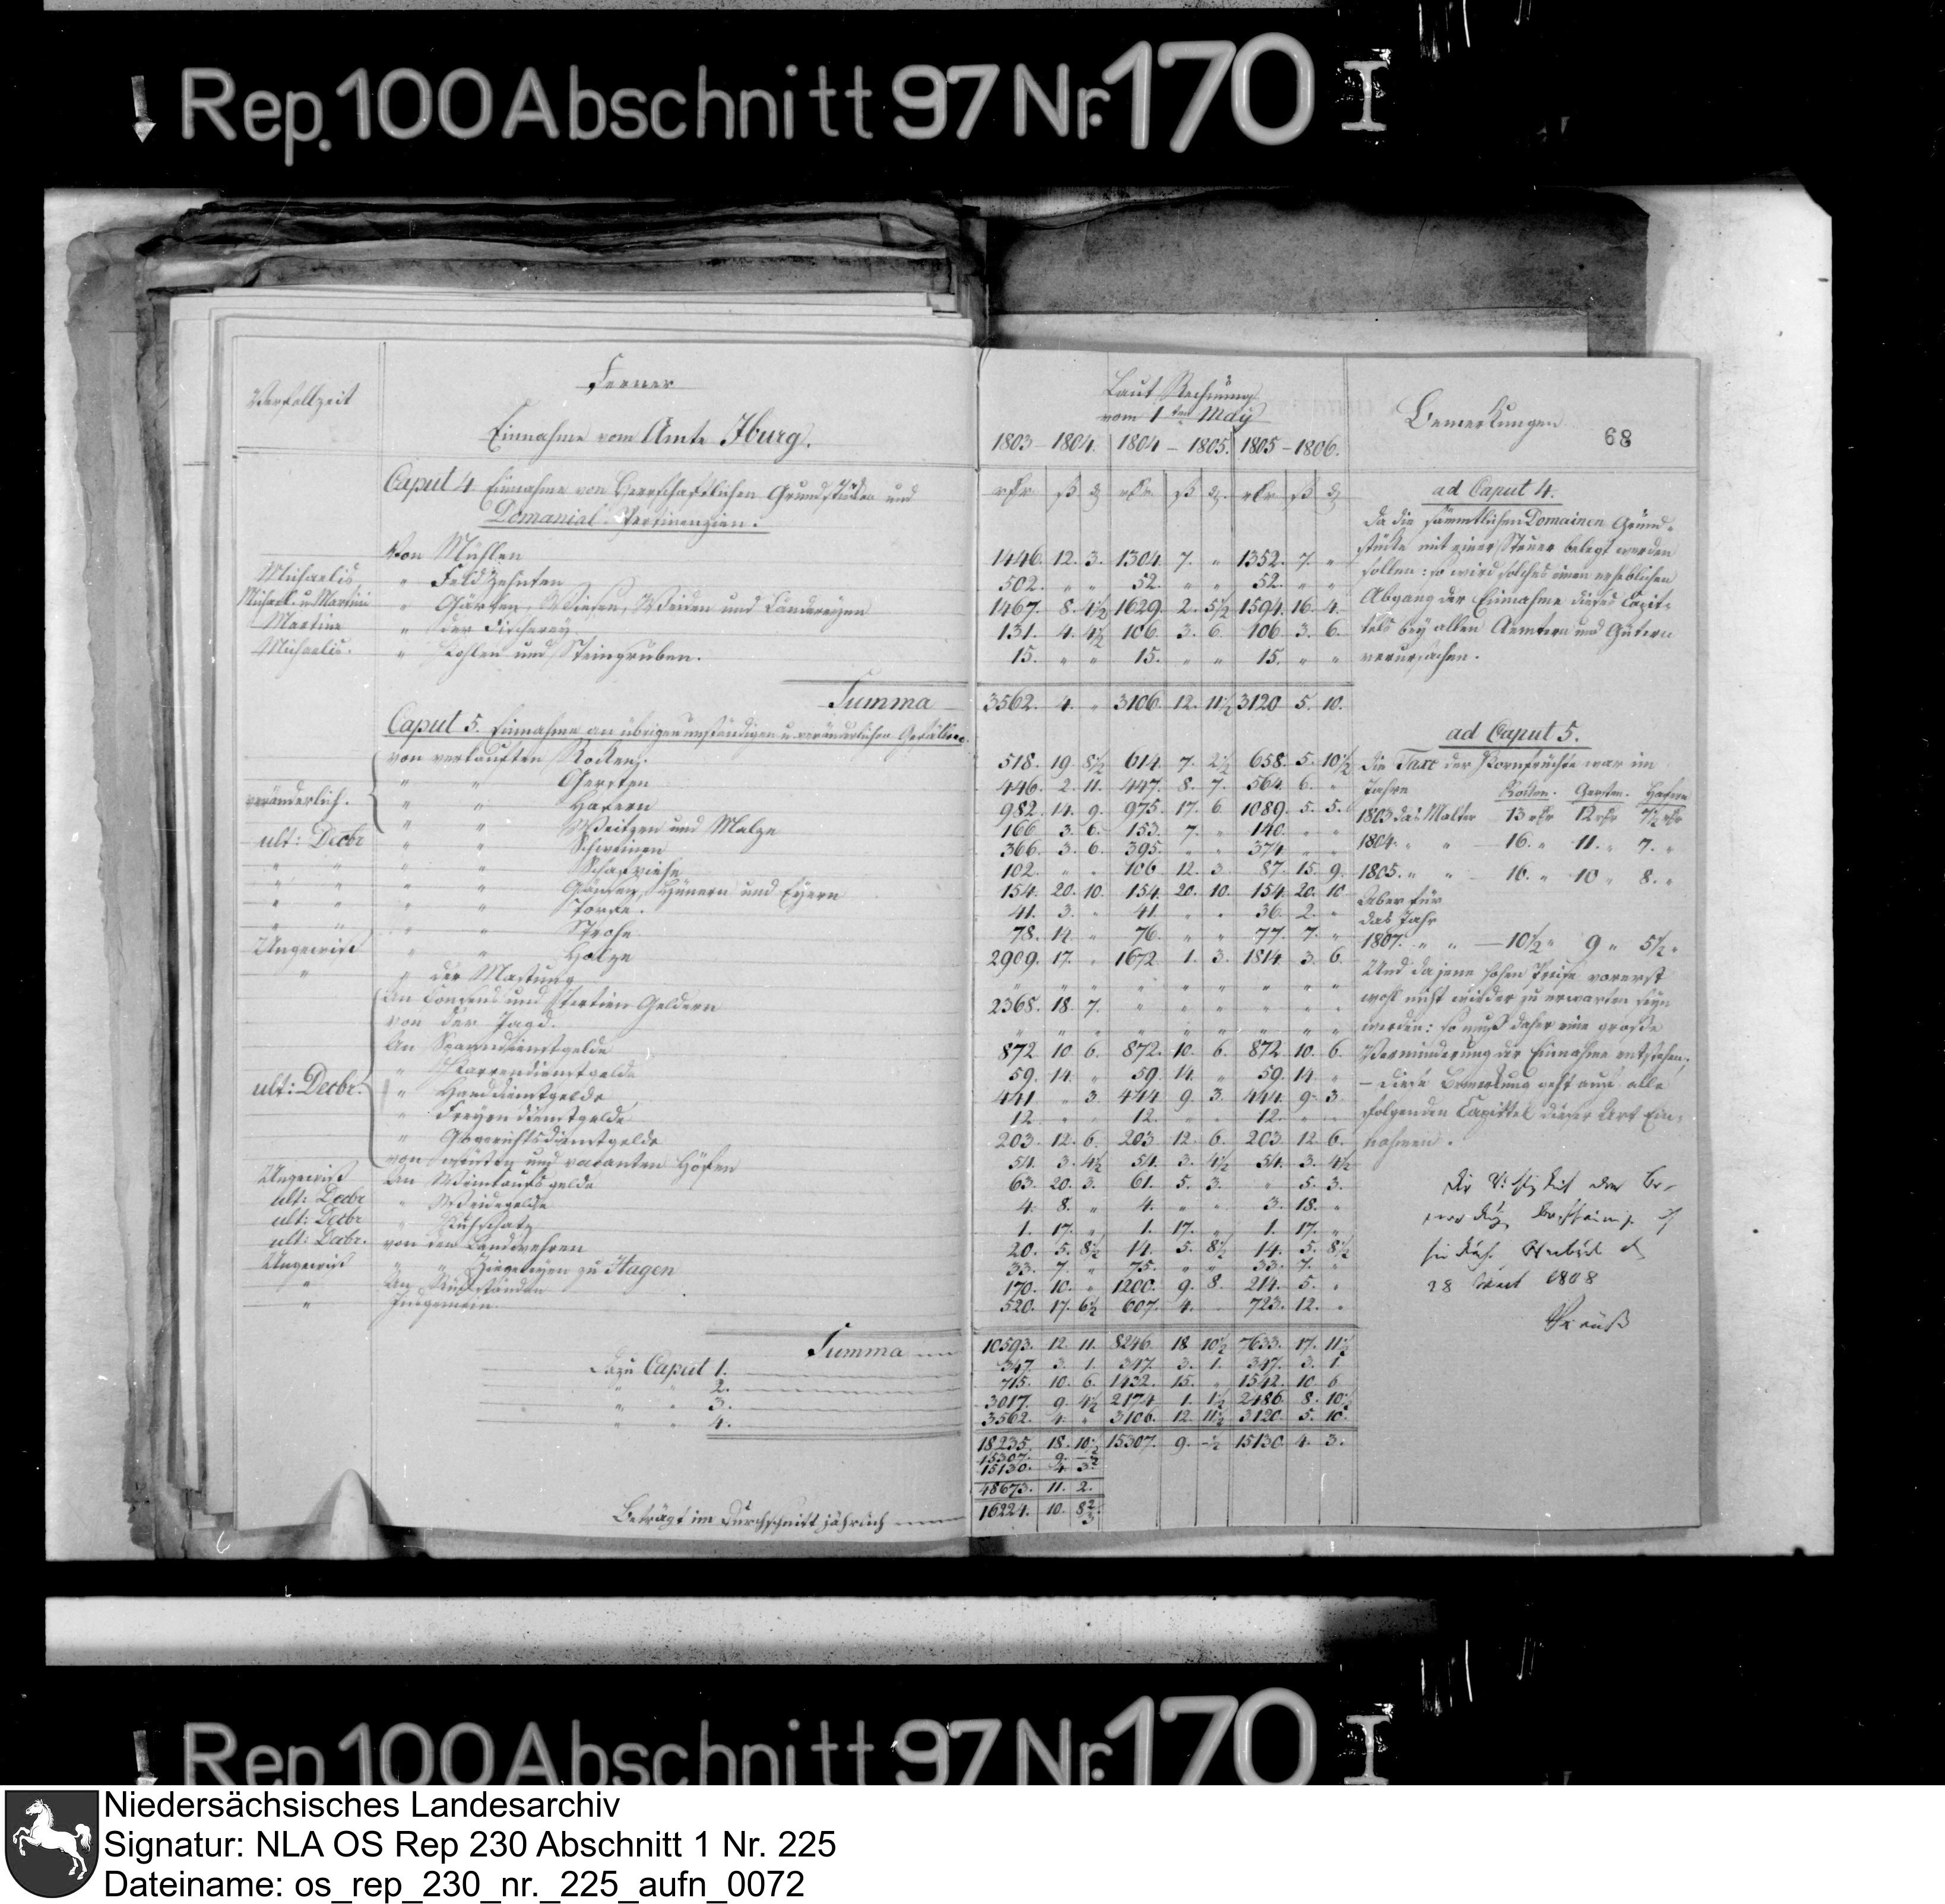 Rep. 100 Abschnitt 97 Nr. 170 I
Verfallzeit
Ferner
Einnahme vom Amte Iburg.
Laut Rechnung
vom 1ten May
1803 - 1804. 1804 - 1805. 1805 - 1806.
Bemerkungen
68
Caput 4 Einnahme von Herrschaftlichen Grundstücken und
Domanial Pertinenzien.
rthr ß d rthr ß d rthr ß d
Von Mühlen 1446. 12. 3. 1304. 7. " 1352. 7. "
Michaelis " Feld Zehnten 502. " " 52. " " 52. " "
Michael. u. Martini " Gärten, Wiesen, Weiden und Ländereyen 1467. 8. 4½ 1629. 2. 5½ 1594. 16. 4.
Martini " der Fischerey 131. 4. 4½ 106. 3. 6. 106. 3. 6.
Michaelis. " Kohlen und Steingruben. 15. " " 15. " " 15. " "
Summa 3562. 4. " 3106. 12. 11½ 3120. 5. 10.
Caput 5. Einnahme an übrigen unständigen u. veränderlichen Gefällen.
von verkauften Rocken. 518. 19. 8½ 614. 7. 2½ 658. 5. 10½
" " Gersten 446. 2. 11. 447. 8. 7. 564. 6. "
veränderlich. " " Hafern 982. 14. 9. 975. 17. 6. 1089. 5. 5.
" " Weitzen und Malze 166. 3. 6. 153. 7. " 140. " "
ult: Decbr " " Schweinen 366. 3. 6. 395. " " 374. " "
" " " " Schafviehe 102. " " 106. 12. 3. 87. 15. 9.
" " " " Gänsen, Hünern und Eyern 154. 20. 10. 154. 20. 10. 154. 20. 10.
" " " " Torfe. 41. 3. " 41. " " 36. 2. "
" " " " Strohe 78. 14. " 76. " " 77. 7. "
Ungewiß " " Holze 2909. 17. " 1672. 1. 3. 1814. 3. 6.
" " der Mastung " " " " " " " " "
An Consens und Tertien Geldern 2368. 18. 7. " " " " " "
von der Jagd. " " " " " " " " "
An Spanndienstgelde 872. 10. 6. 872. 10. 6. 872. 10. 6.
" 59. 14. " 59. 14. " 59. 14. "
ult: Decbr. " Handdienstgelde 441. " 3. 444. 9. 3. 444. 9. 3.
" Freyendienstgelde 12. " " 12. " " 12. " "
" Gogerichtsdienstgelde 203. 12. 6. 203. 12. 6. 203. 12. 6.
von wüsten und vacanten Höfen 54. 3. 4½ 54. 3. 4½ 54. 3. 4½
Ungewiß An Weinkaufsgelde 63. 20. 3. 61. 5. 3. " 5. 3.
ult: Decbr " Weidegelde 4. 8. " 4. " " 3. 18. "
ult: Decbr " Kuhschatz 1. 17. " 1. 17. " 1. 17. "
ult: Decbr. von den Landwehren 20. 5. 8½ 14. 5. 8½ 14. 5. 8½
Ungewiß " " Ziegeleyen zu Hagen 33. 7. " 75. " " 33. 7. "
" An Rückständen 170. 10. " 1200. 9. 8. 214. 5. "
" Insgemein 520. 17. 6½ 607. 4. " 723. 12. "
Summa 10593. 12. 11. 8246. 18. 10½ 7633. 17. 11½
dazu Caput 1. 347. 3. 1. 347. 3. 1. 347. 3. 1.
" " 2. 715. 10. 6. 1432. 15. " 1542. 10. 6
" " 3. 3017. 9. 4½ 2174. 1. 1½ 2486. 8. 10½
" " 4. 3562. 4. " 3106. 12. 11½ 3120. 5. 10.
18235. 18. 10½ 15307. 9. -½ 15130. 4. 3.
15307. 9. -½
15130. 4. 3.
48673. 11. 2.
Beträgt im Durchschnitt jährlich 16224. 10. 8⅔.
ad Caput 4.
Da die sämmtlichen Domainen Grund-
stücke mit einer Steuer belegt werden
sollen: so wird solches einen erheblichen
Abgang der Einnahme dieses Capit-
tels bey allen Aemtern und Gütern
verursachen.
ad Caput 5.
die Taxe der Kornfrüchte war im
Jahre Rocken. Gersten. Hafern
1803 das Malter 13 rthr 12 rthr 7½ rthr
1804. " " — 16. " 11. " 7. "
1805. " " — 16. " 10 " 8. "
Aber für
das Jahr
1807. " " — 10½ " 9 " 5½ "
Und da jene hohen Preise vorerst
wohl nicht wieder zu erwarten seyn
werden: so muß daher eine große
Verminderung der Einnahme entstehen;
— diese Bemerkung geht auf alle
folgenden Capittel dieser Art Ein-
nahmen.
28 1808
Niedersächsisches Landesarchiv
Signatur: NLA OS Rep 230 Abschnitt 1 Nr. 225
Dateiname: os_rep_230_nr._225_aufn_0072
Rep 100 Abschnitt 97 Nr. 170 I